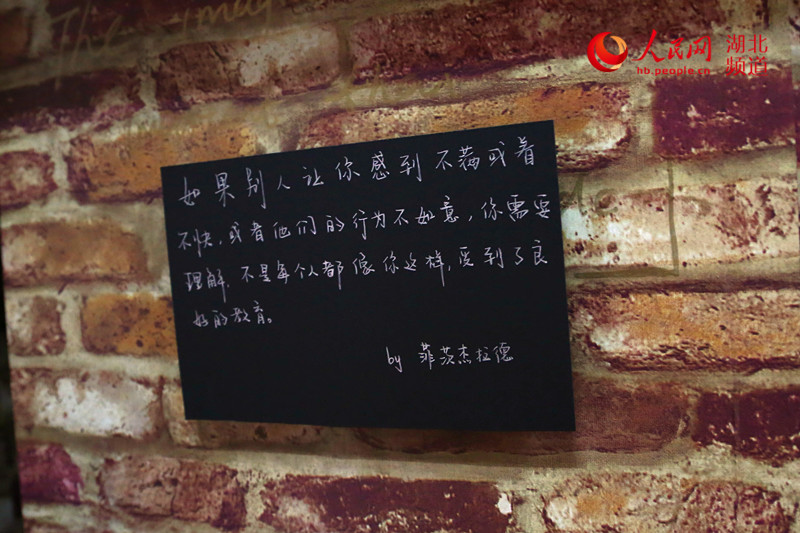 The may
人民网 湖北
hb.people.cn 频道
如果别人让你感到不满或着
不快,或者他们的行为不如意,你需要
理解,不是每个人都像你这样,受到了良
好的教育。
by 菲茨杰拉德